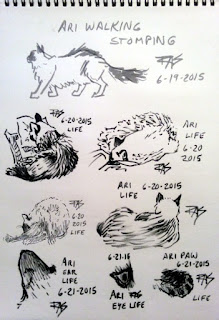 ARI WALKING
STOMPING
FAS
6-19-2015
6-20-2015
LIFE
FAS
ARI
LIFE
6-20
2015
FAS
ARI 6-20-2015
LIFE
FAS
6-20
2015
LIFE
FAS
ARI
EAR
LIFE
6-21-2015
6-21-15
ARI FAS
EYE LIFE
ARI PAW
6-21-2015
LIFE
FAS